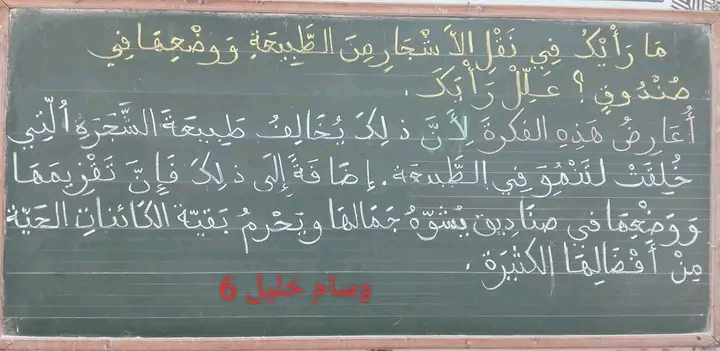 مَا رَأْيُكَ فِي نَقْلِ الأَشْجَارِ مِنَ الطَّبِيعَةِ وَوَضْعِهَا فِي
صُنْدُوقٍ ؟ عَلِّلْ رَأْيَكَ .
أُعَارِضُ هَذِهِ الفِكْرَةَ لِأَنَّ ذَلِكَ يُخَالِفُ طَبِيعَةَ الشَّجَرَةِ الَّتِي
خُلِقَتْ لِتَنْمُوَ فِي الطَّبِيعَةِ . إِضَافَةً إِلَى ذَلِكَ فَإِنَّ تَقْزِيمَهَا
وَوَضْعِهَا في صنَادِيقَ يُشَوِّهُ جَمَالَهَا ويَحْرِمُ بَقِيَّةَ الكَائنَاتِ الحَيَّةِ
مِنْ أَفْضَالِهَا الكَثِيرَةِ .
وسام خليل 6